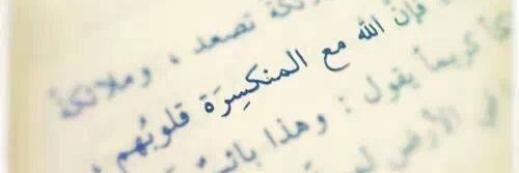 ملائكة تصعد ، وملائكة
فإن الله مع المنكسِرَة قلوبُهم
كريماً يقول : وهذا
في الأرض